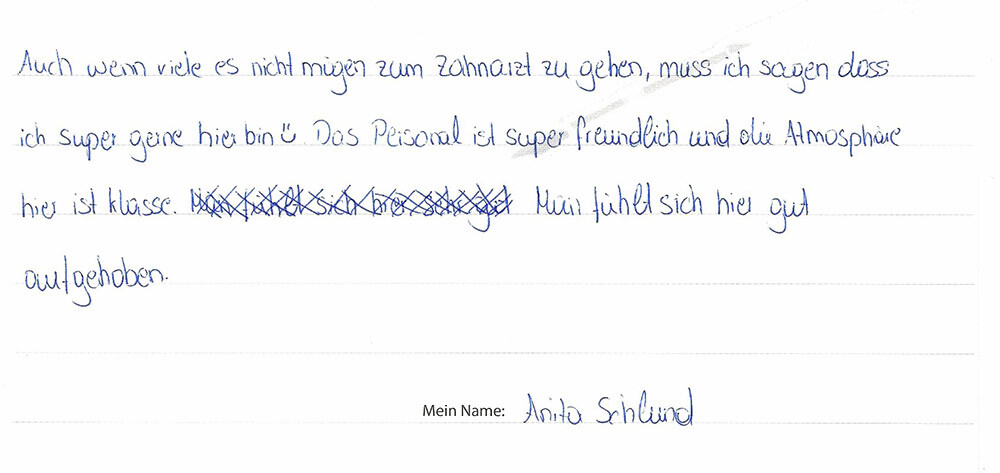 Auch wenn viele es nicht mögen zum Zahnarzt zu gehen, muss ich sagen dass
ich super gerne hier bin ü. Das Personal ist super freundlich und die Atmosphäre
hier ist klasse. Man fühlt sich hier sehr gut Man fühlt sich hier gut
aufgehoben.
Mein Name: Anita Schlund